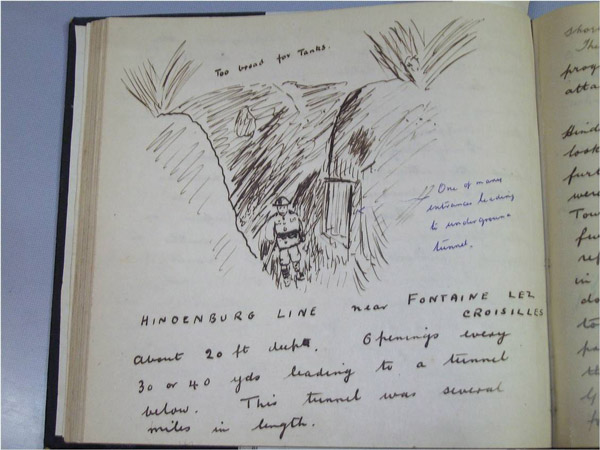 Too broad for Tanks.
One of many
entrances leading
to underground
tunnel.
HINDENBURG LINE near FONTAINE LEZ
CROISILLES
About 20 ft deep. Openings every
30 or 40 yds leading to a tunnel
below. This tunnel was several
miles in length.
shor
The
prog
atta
Hind
look
furt
were
Tow
few
ref
in
do
to
pa
th